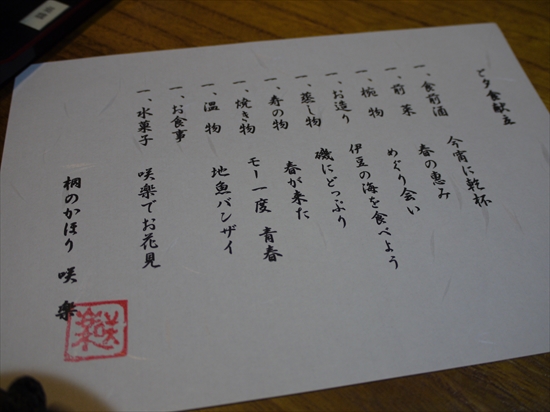 ご夕食献立
一、食前酒 今宵に乾杯
一、前菜 春の恵み
一、椀物 めぐり会い
一、お造り 伊豆の海を食べよう
一、蒸し物 磯にどっぷり
一、寿の物 春が来た
一、焼き物 モー一度 青春
一、温物 地魚バンザイ
一、お食事
一、水菓子 咲楽でお花見
柄のかほり 咲楽
咲楽